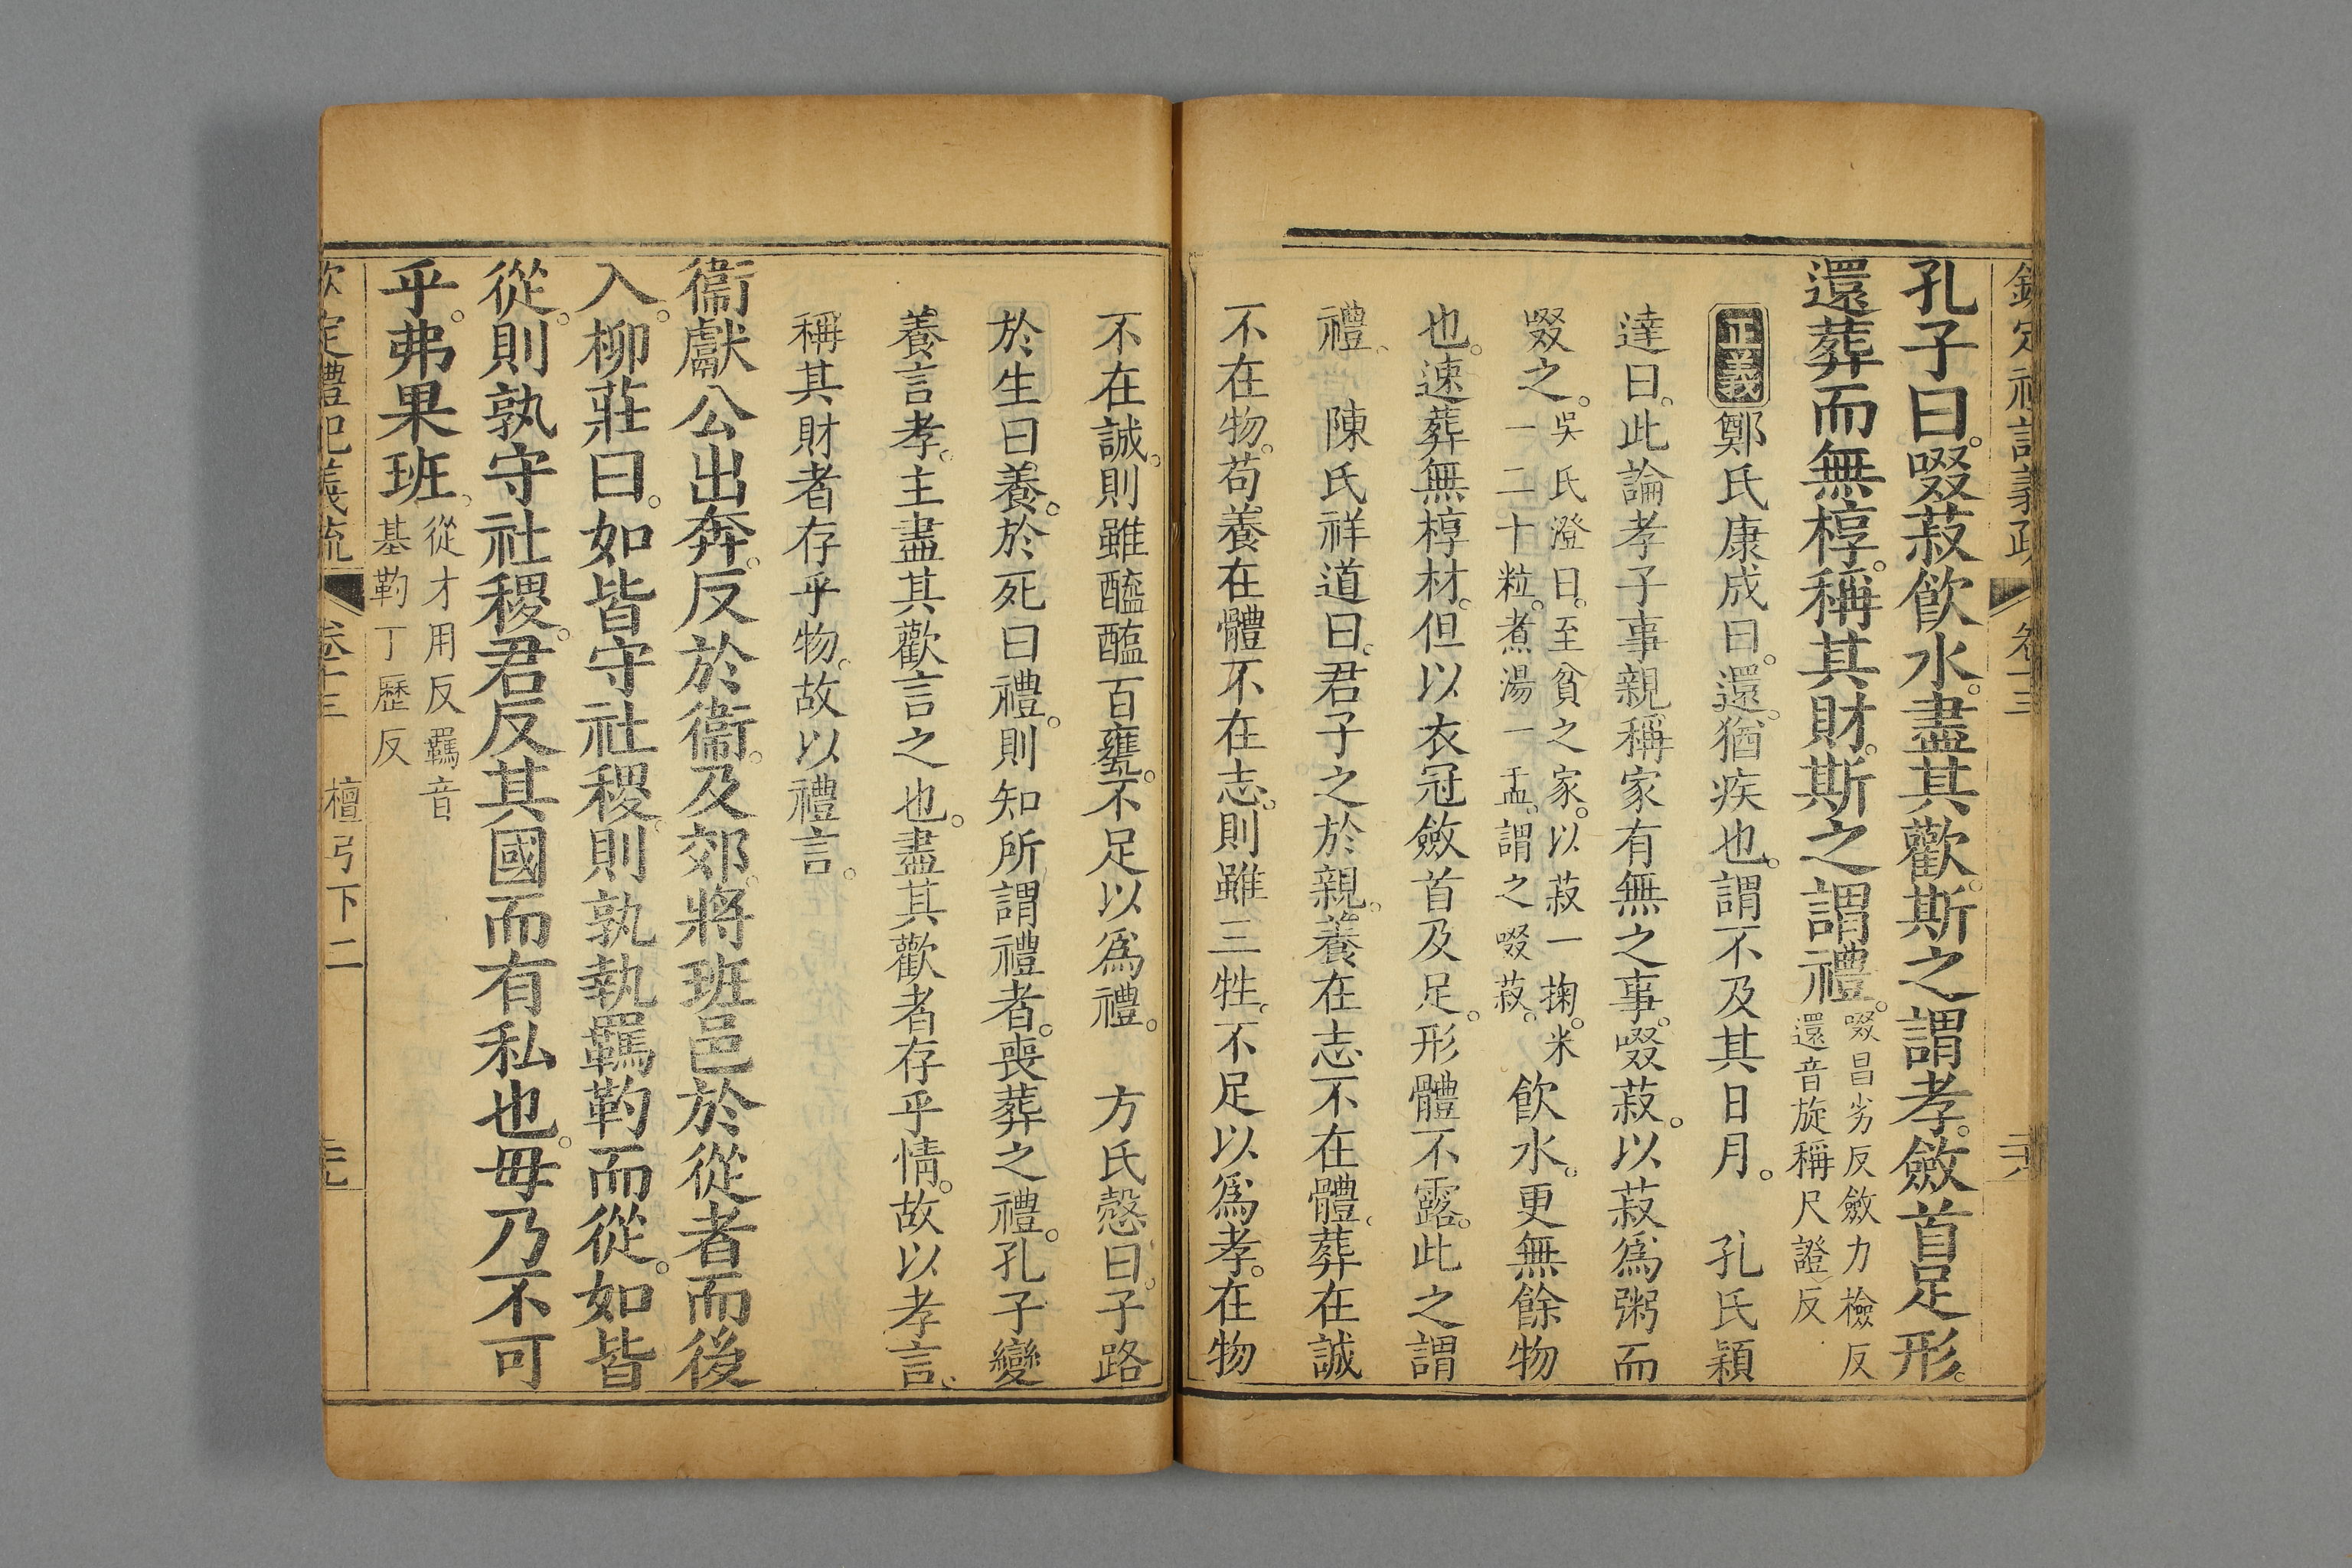 欽定禮記義疏 卷十三 二六
孔子曰。啜菽飲水。盡其歡。斯之謂孝。斂首足形。
還葬而無椁。稱其財。斯之謂禮。啜昌劣反斂力檢反
還音旋稱尺證反
正義鄭氏康成曰。還。猶疾也。謂不及其日月。 孔氏穎
達曰。此論孝子事親稱家有無之事。啜菽。以菽爲粥而
啜之。吳氏澄曰。至貧之家。以菽一掬。米
一二十粒。煮湯一盂。謂之啜菽。飲水。更無餘物
也。速葬無椁材。但以衣冠斂首及足。形體不露。此之謂
禮。 陳氏祥道曰。君子之於親。養在志不在體。葬在誠
不在物。苟養在體不在志。則雖三牲。不足以爲孝。在物
不在誠。則雖醯醢百甕。不足以爲禮。 方氏慤曰。子路
於生曰養。於死曰禮。則知所謂禮者。喪葬之禮。孔子變
養言孝。主盡其歡言之也。盡其歡者存乎情。故以孝言。
稱其財者存乎物。故以禮言。
衞獻公出奔。反於衞。及郊。將班邑於從者而後
入。柳莊曰。如皆守社稷。則孰執羈靮而從。如皆
從。則孰守社稷。君反其國而有私也。毋乃不可
乎。弗果班。從才用反羈音
基靮丁歷反
欽定禮記義疏 卷十三 檀弓下二 二九